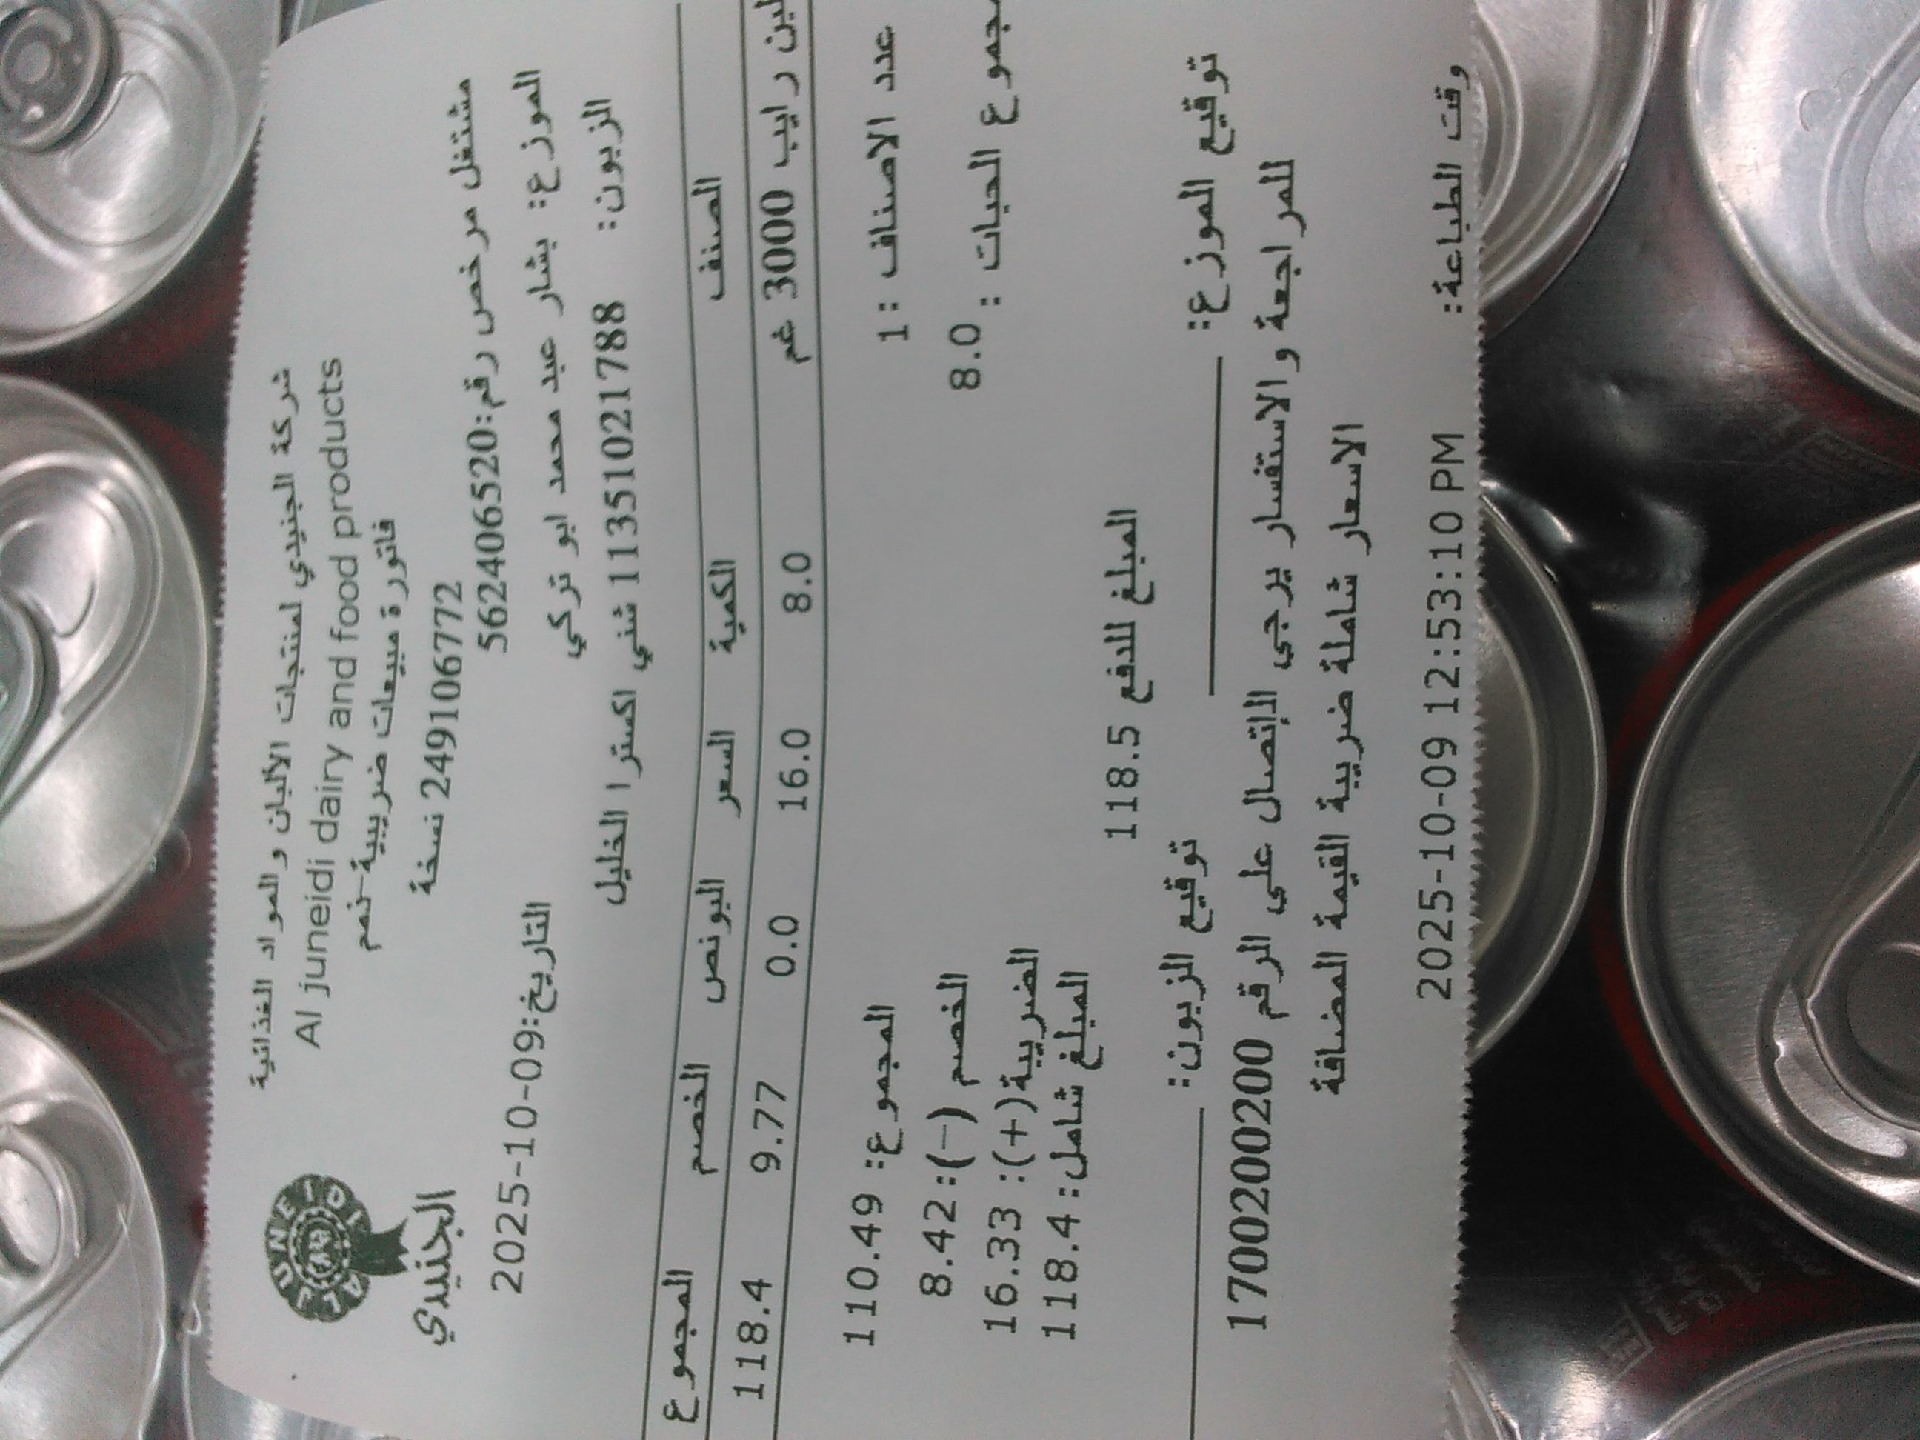 JUNEIDI
AL
الجنيدي
شركة الجنيدي لمنتجات الألبان والمواد الغذائية
Al juneidi dairy and food products
فاتورة مبيعات ضريبية-نعم
2491067​72 نسخة
مشتغل مرخص رقم:562406520
الموزع: بشار عبد محمد ابو تركي
التاريخ:2025-10-09
الزبون: 11351021788 شني اكسترا الخليل
الصنف الكمية السعر البونص الخصم المجموع
لبن رايب 3000 غم 8.0 16.0 0.0 9.77 118.4
عدد الاصناف : 1
المجموع: 110.49
مجموع الحبات : 8.0
الخصم (-): 8.42
الضريبة(+): 16.33
المبلغ شامل: 118.4
المبلغ للدفع 118.5
توقيع الموزع: توقيع الزبون:
للمراجعة والاستفسار يرجى الإتصال على الرقم 1700200200
الاسعار شاملة ضريبة القيمة المضافة
وقت الطباعة: 2025-10-09 12:53:10 PM